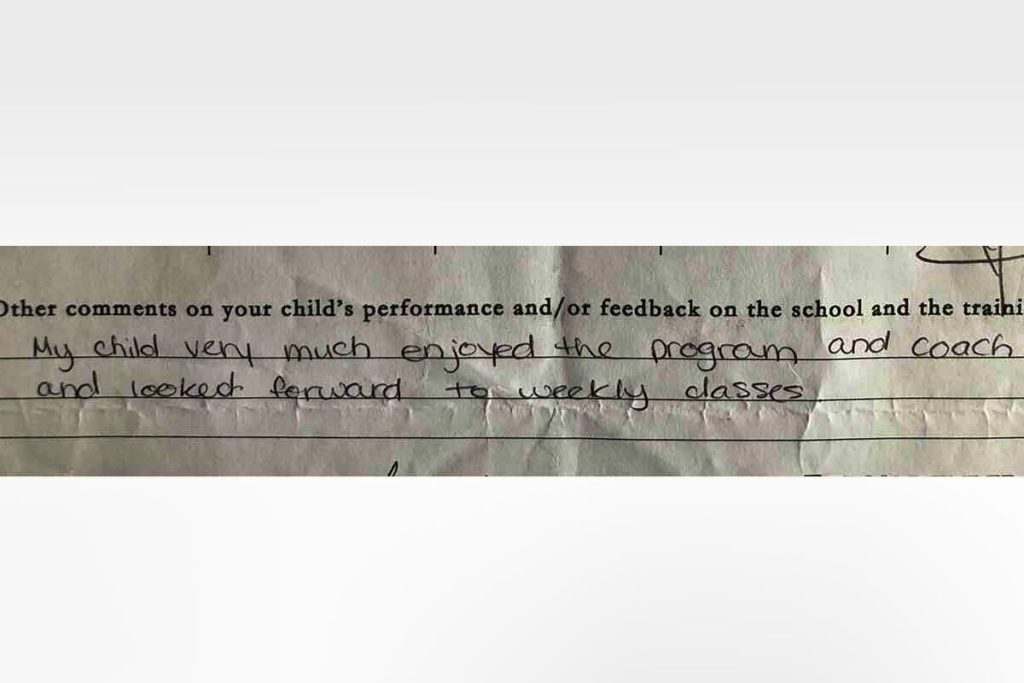 Other comments on your child's performance and/or feedback on the school and the traini
My child very much enjoyed the program and coach
and looked forward to weekly classes